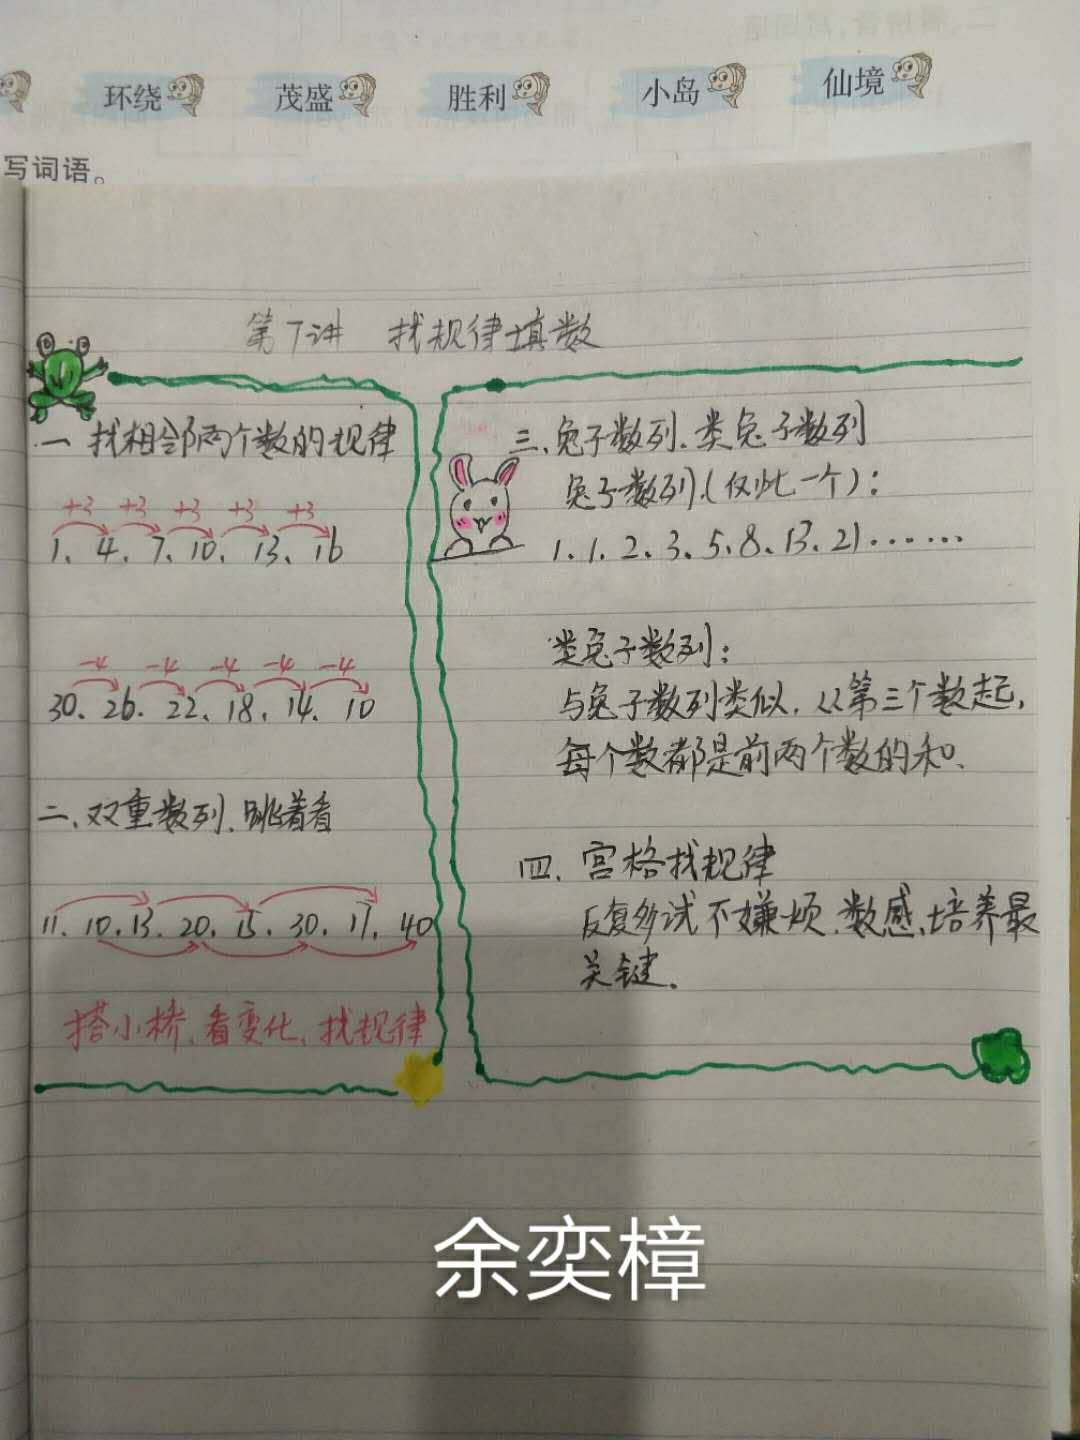 环绕 茂盛 胜利 小岛 仙境
写词语。
第7讲 找规律填数
一 找相邻两个数的规律
+3 +3 +3 +3 +3
1、4、7、10、13、16
-4 -4 -4 -4 -4
30、26、22、18、14、10
二、双重数列、跳着看
11、10、13、20、15、30、17、40
搭小桥、看变化、找规律
三、兔子数列、类兔子数列
兔子数列(仅此一个):
1、1、2、3、5、8、13、21……
类兔子数列:
与兔子数列类似,从第三个数起,
每个数都是前两个数的和、
四、宫格找规律
反复多试不嫌烦、数感、培养最
关键。
余奕樟